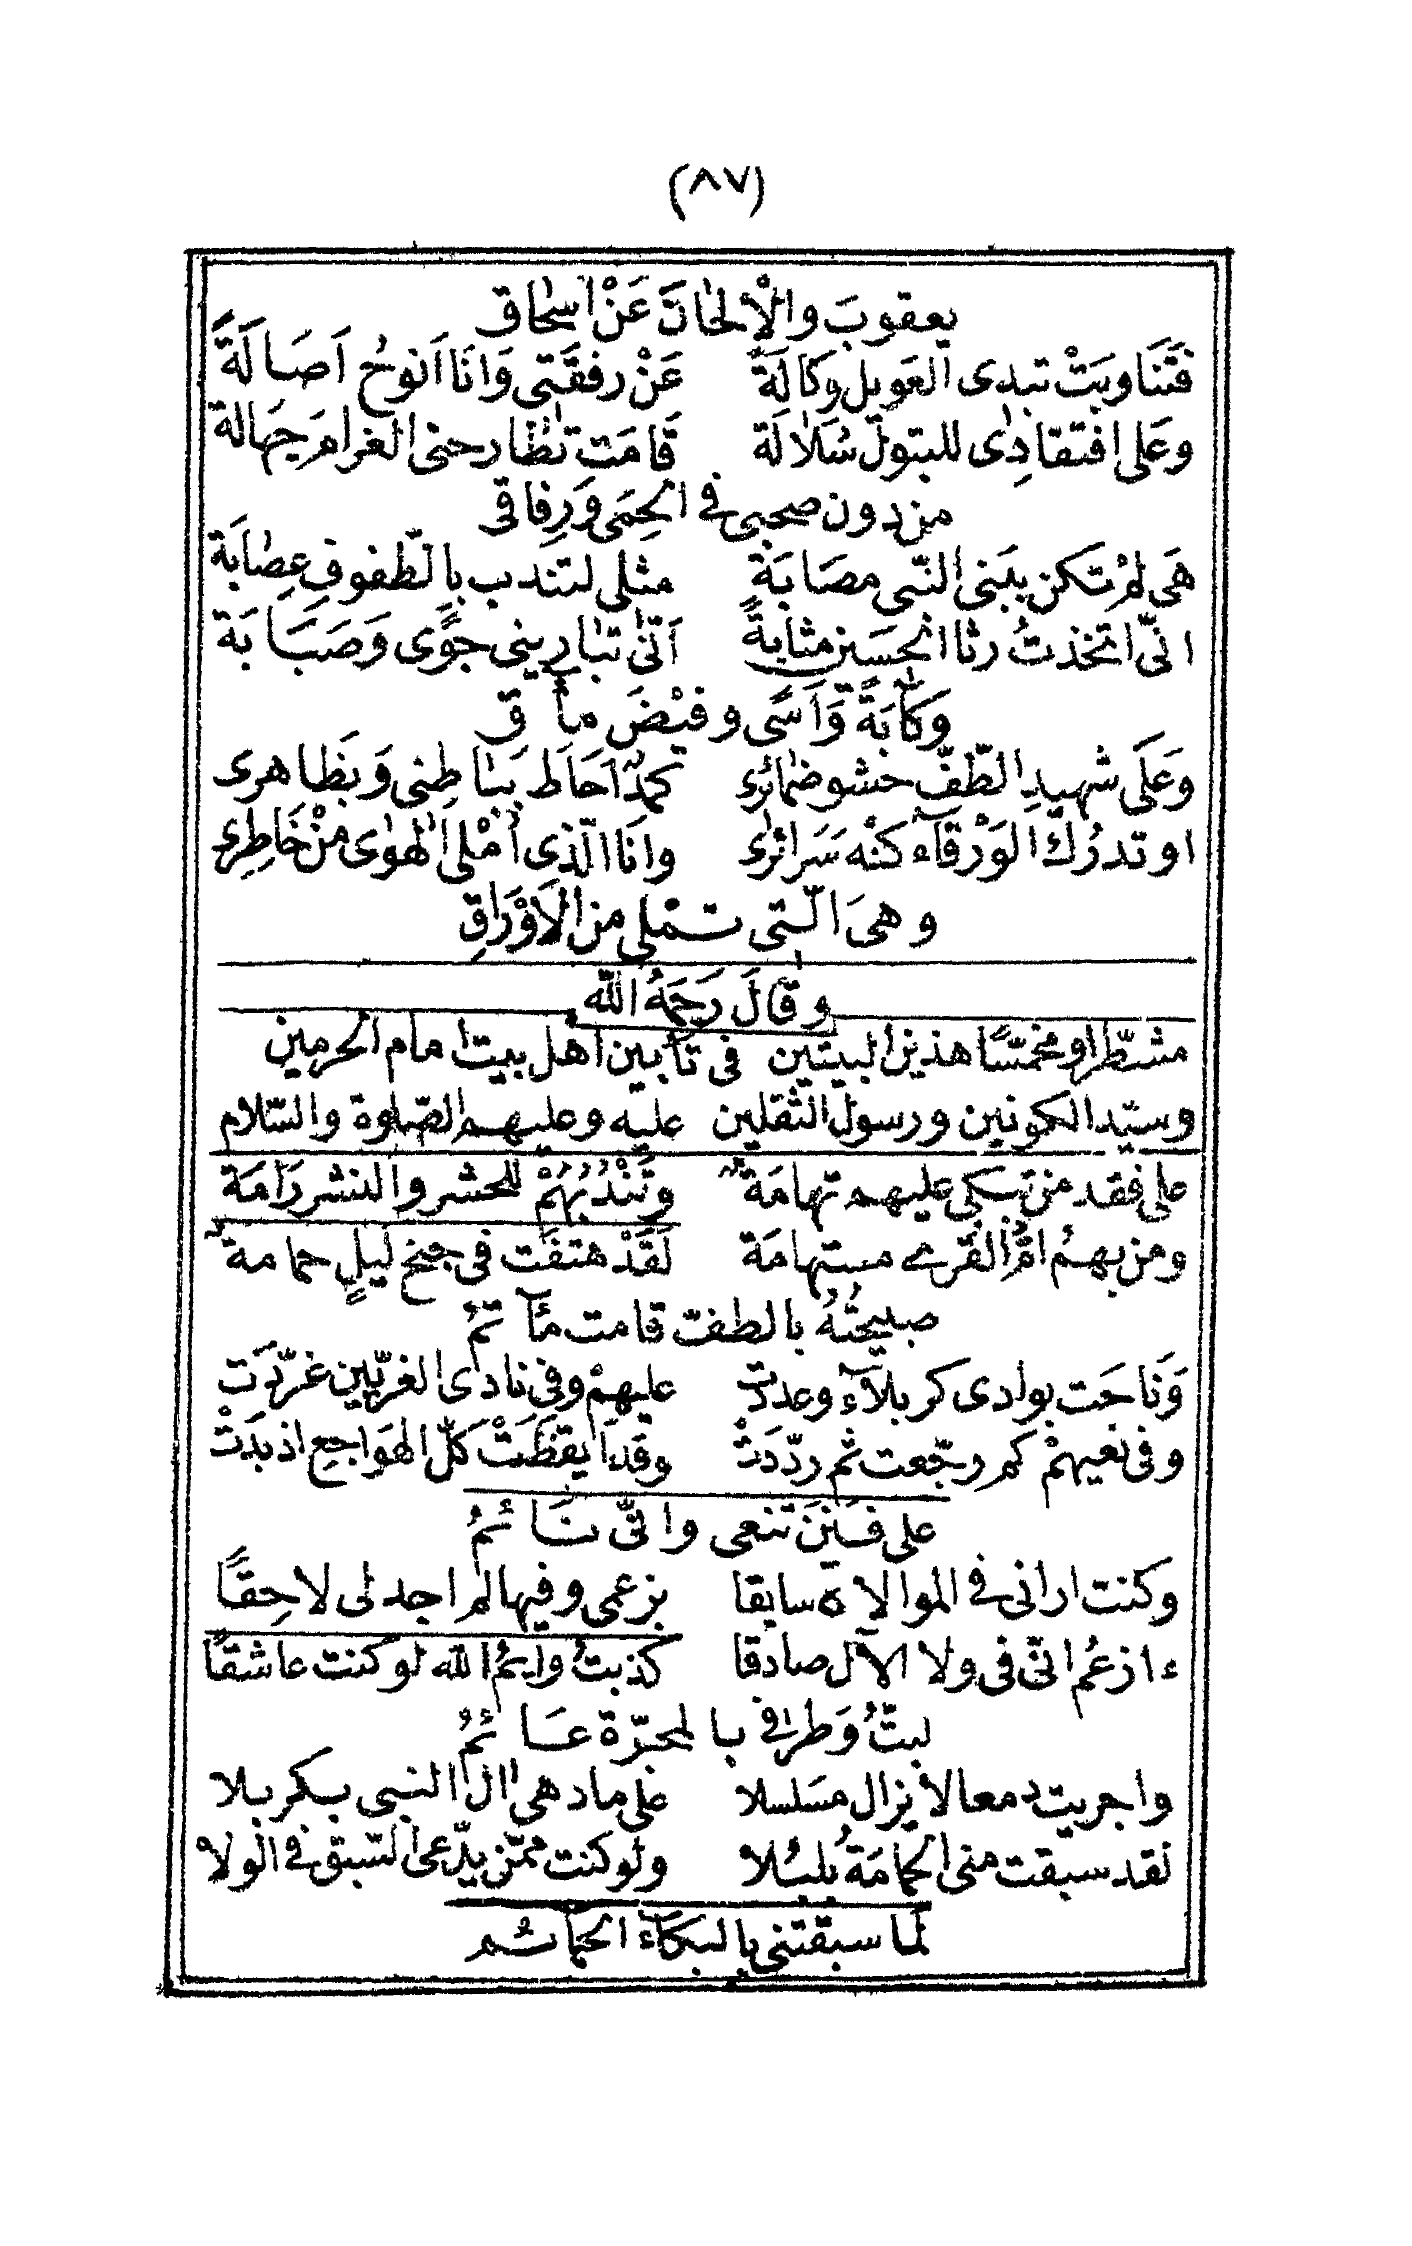 (٨٧)
يعقوبَ والْاَلحٰانَ عَنْ اسحٰاق
فتَنَاوبَتْ تبدى العَويل وكَالَةً عَنْ رفقَتى وَانَا اَنوحُ اَصَالَةً
وعَلى افتقادِى للبتولّ سُلالَة قَامَت تطٰارحنى الغرام جهالة
من دون صحبى فى الحِمَى ورِفاقى
هَى لمْ تكن ببَنى النّبى مصَابَة مثلى لتندب بالطّفوف عِصٰابَة
انّى اتخذتُ رثا الحسَين مثابةً اَنّىٰ تبٰارينى جوًى وَصَبَابَة
وَكآبَةً وَّاَسًى وفيْضَ مآقى
وعَلَى شهيدِ الطّفّ حشو ضمٰائرى كمدٌ اَحَاطَ ببٰاطِنى وَبظَاهرى
اوتدرُك الوَرْقآء كنْه سَرائرى وانَا الّذى اُمْلى الهٰوٰى منْ خَاطِرى
وهىَ الّتى تملى من الاَوْرَاقِ
وقٰالَ رَحمَهُ اللّه
مشطّرا ومخمسًّا هذين البيتين فى تأبين اهل بيت امام الحرمين
وسيّد الكونين ورسول الثّقلين عليه وعليهم الصّلوة والسّلام
على فقد من تبكى عليهم تهامَة وتَنْدُبُهُمْ للحشر والنشر رَامَة
ومن بهمُ امُّ القُرى مستهامَة لَقَدْ هتفَت فى جنح ليلٍ حمامة
صبيحتُهُ بالطفّ قامت مآتمُ
وَنَاجَت بوادى كربلآء وعددت عليهمْ وفى نادى الغريّين غرّدَت
وفى نعيهمْ كم رجّعت ثم ردّدَتْ وقَد اَيقظَتْ كلّ الهَواجِع اذ بدَتْ
على فَننٍ تنعى وانّى نَائمُ
وكنت ارانى فى الموالاة سابقا بزعمى وفيها لم اجد لى لاحِقًا
ءازعُم انّى فى ولا الآل صادقا كذبتُ وايمُ الله لو كنت عاشقًا
لبتُّ وَطرفى بالمجرّة عَائمُ
واجريت دمعا لا يزال مسَلسلا على ما دهى ال النبى بكربلا
لقد سبقت منى الحمامَةُ بلبُلا ولو كنت ممّن يدّعى السّبق فى الولا
لَما سبقتنى بالبكآء الحمآئم